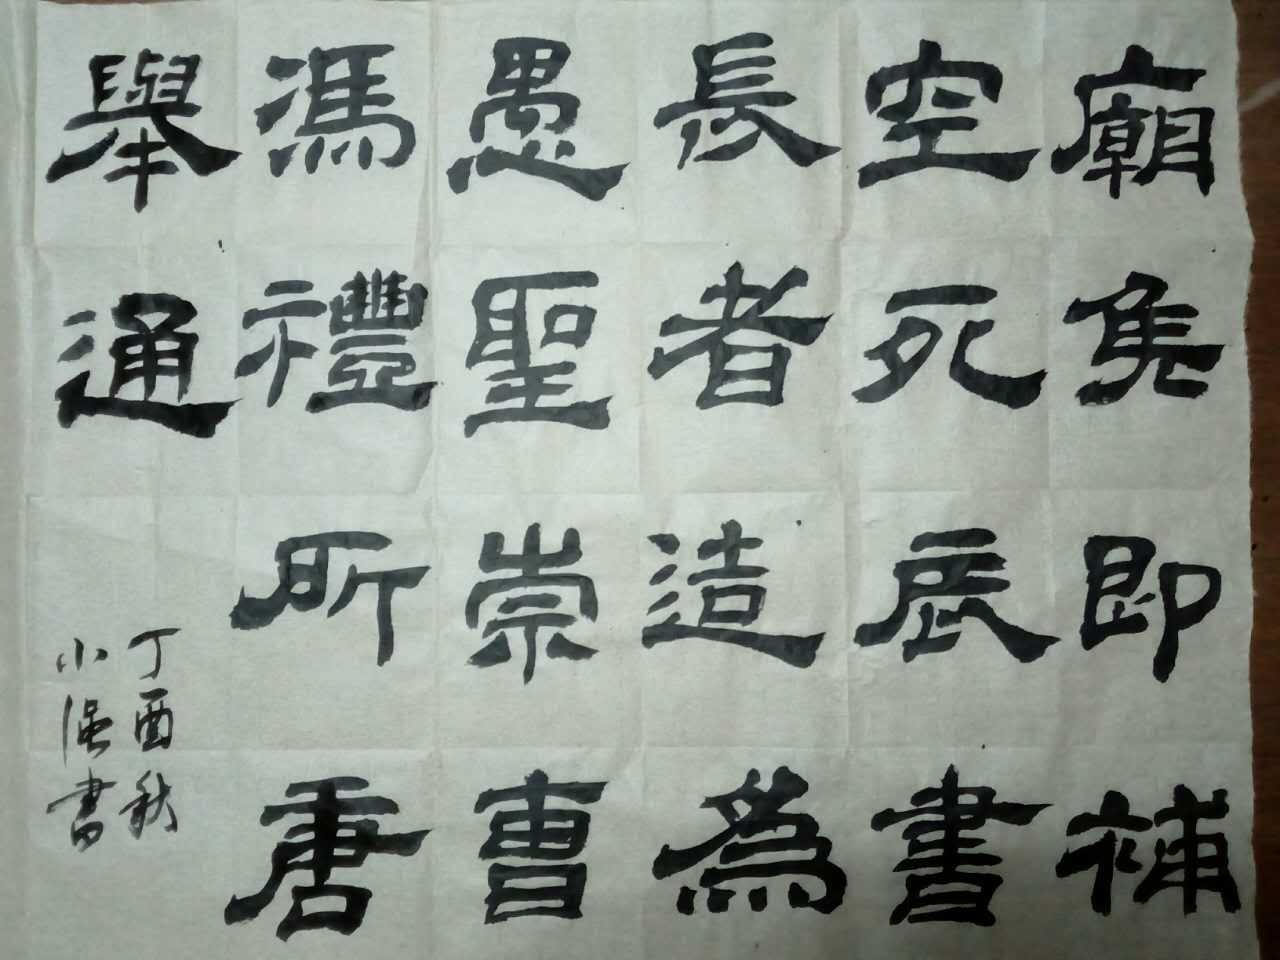 廟雋即補
空死辰書
長者造為
愚聖崇曹
馮禮所唐
舉通
丁酉秋
小溫書